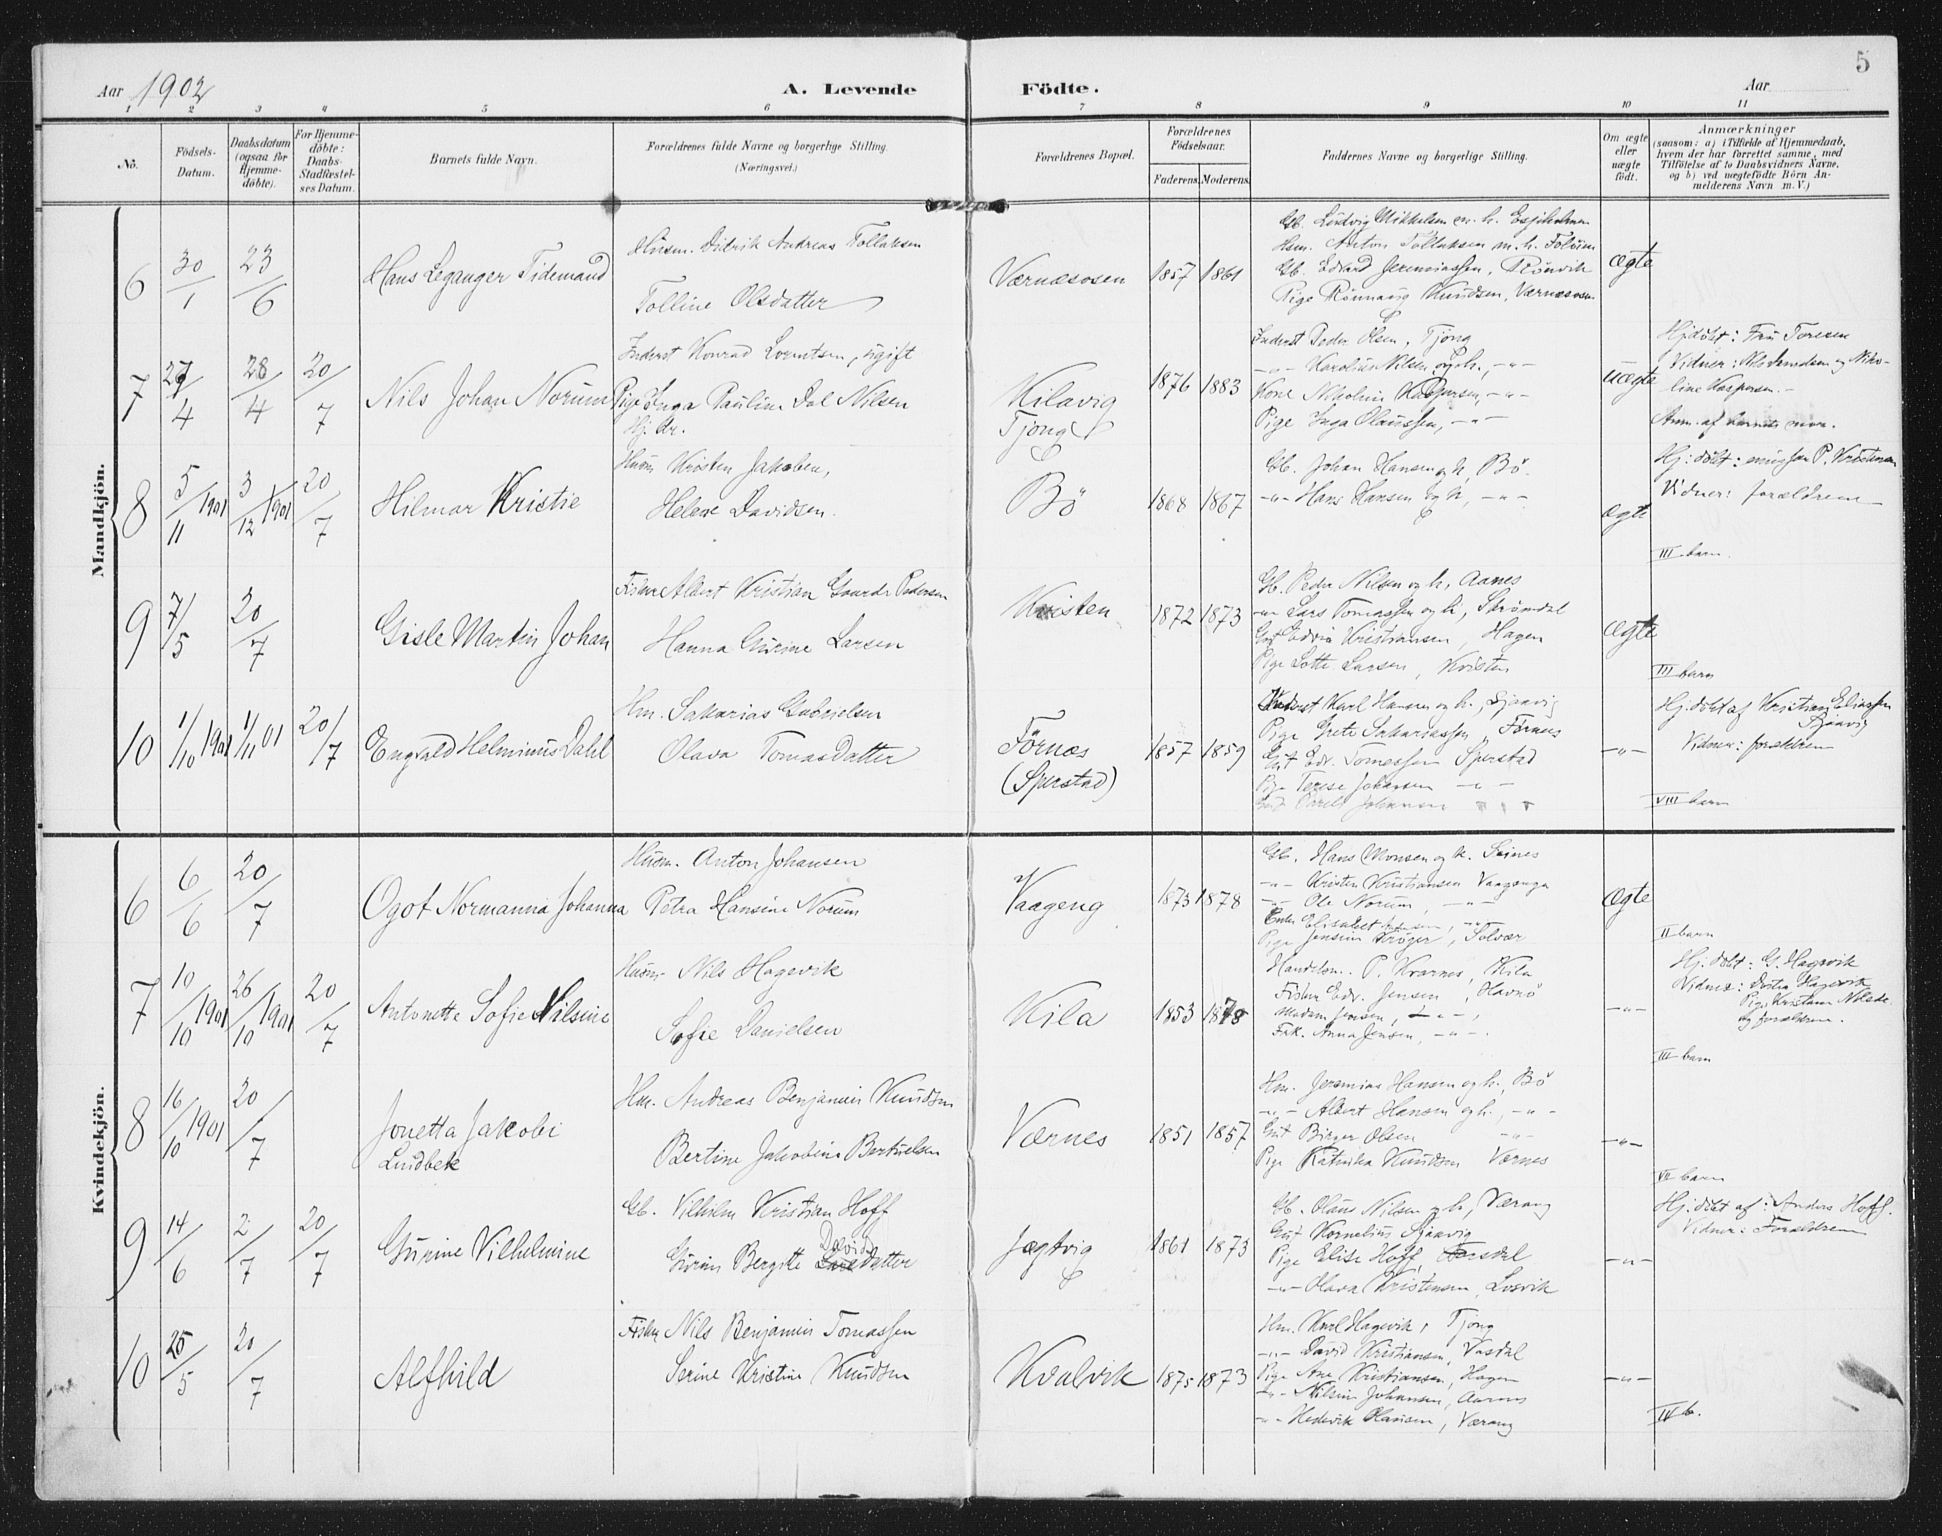 5
Aar 1902
A. Levende Födte.
Aar
1 2 3 4 5 6 7 8 9 10 11
Nö.
Födsels-Datum.
Daabsdatum (ogsaa for Hjemme-döbte).
For Hjemme-döbte: Daabs-Stadfæstel-ses Datum.
Barnets fulde Navn.
Forældrenes fulde Navne og borgerlige Stilling.
(Næringsvei.)
Forældrenes Bopæl.
Forældrenes Födselsaar.
Faderens. Moderens.
Faddernes Navne og borgerlige Stilling.
Om ægte eller uægte födt.
Anmærkninger
(saasom: a) i Tilfælde af Hjemmedaab,
hvem der har forrettet samme, med
Tilföielse af to Daabsvidners Navne,
og b) ved uægtefödte Börn An-
melderens Navn m.V.)
Mandkjön.
6 30/1 23/6 Hans Leganger Tidemand
Husm. Didrik Andreas Tollaksen
Tolline Olsdatter
Værnæsosen 1857 1861
Gb. Ludvig Mikkelsen m. h.
Hsm. Anton Tollaksen m. h.
Gb. Edvard Jeremiassen, Rönvik
Pige Rönnaug Knudsen, Værnæsosen
ægte
7 27/4 28/4 20/7 Nils Johan Norum
Inderst Konrad Lorentsen, ugift
Pige Inga Pauline Dal Nilsen
Kilavig
Tjong
1876 1883
Inderst Peder Olsen, Tjong
-"- Karolius Nilsen og h., -"-
Kone Nikoline Kaspersen, -"-
Pige Inga Olaussen, -"-
uægte
Hj.döbt: Fru Toresen
Vidner: Nils Arntsen og Niko-
line Kaspersen.
Anm. af barnets mor.
8 5/11 1901 3/12 1901 20/7 Hilmar Kristie
Husm Kristen Jakobsen,
Helene Davidsen.
Bö 1868 1867
Gb. Johan Hansen og h, Bö
-"- Hans Hansen og h, -"-
ægte
Hj: döbt: P. Kristensen
Vidner: forældrene
III barn.
9 7/5 20/7 Gisle Martin Johan
Fisker Albert Kristian Pedersen
Hanna Gurine Larsen
Kvisten 1872 1873
Gb. Peder Nilsen og h, Aanes
-"- Lars Tomassen og h, Strömdal
Gut Edvin Kristiansen, Hagen
Pige Lotte Larsen, Kvisten
ægte
III barn
10 1/10 1901 1/11 01 20/7 Engvald Helminus Dahl
Hm. Sakarias Gabrielsen
Olava Tomasdatter
Förnæs
(Sperstad)
1857 1859
Inderst Karl Hansen og h, Sjaavig
Pige Grete Sakariassen, Förnæs
Gut Edv. Tomassen Sperstad
Pige Terese Johansen -"-
Gut Johansen " " "
-"-
Hj. döbt af Kristian Eliassen
Sjaavig
Vidner: forældrene
VIII barn
Kvindekjön.
6 6/6 20/7 Ogot Normanna Johanna
Husm. Anton Johansen
Petra Hansine Norum
Vaageng 1873 1878
Gb. Hans Monsen og h. Seines
-"- Kristen Kristiansen Vaagenga
-"- Ole Norum, -"-
Enke Elisabet
Pige Jensine Kröger, Solvær
ægte
II barn
7 10/10 1901 26/10 1901 20/7 Antonette Sofie Nilsine
Husm Nils Hagevik
Sofie Danielsen
Kila 1853 1878
Handelsm. P. Kvarnes, Kila
Fisker Edv. Jensen, Havnö
Madam Jensen, -"-
Frk. Anna Jensen, -"-
-"-
Hj. döbt: G. Hagevik
Vidner: Petra Hagevik
Pige Kristine
og forældrene.
III barn
8 16/10 1901 20/7 Jonetta Jakobi
Lindbek
Hm. Andreas Benjamin Knudsen
Bertine Jakobine Bertielsen
Værnes 1851 1857
Hm. Jeremias Hansen og h., Bö
-"- Albert Hansen og h., -"-
Gut Birger Olsen -"-
Pige Katinka Knudsen Værnes
-"-
VI barn
9 14/6 2/7 20/7 Gurine Vilhelmine
Gb. Vilhelm Kristian Hoff
Gurine Bergitte Davidsdatter
Jægtvig 1861 1873
Gb. Olaus Nilsen og h, Værang
Gut Kornelius Sjaavig
Pige Elise Hoff,
-"- Olava Kristensen, Losvik
-"-
Hj. döbt af: Anders Hoff.
Vidner: Forældrene
10 25/5 20/7 Alfhild
Fisker Nils Benjamin Tomassen
Serine Kristine Knudsen
Kvalvik 1875 1873
Hm. Karl Hagevik, Tjong
-"- David Kristiansen, Vasdal
Pige Ane Kristiansen, Hagen
-"- Nilsine Johansen, Aanæs
-"- Hedevik Hansen, Værang
-"-
IV b.